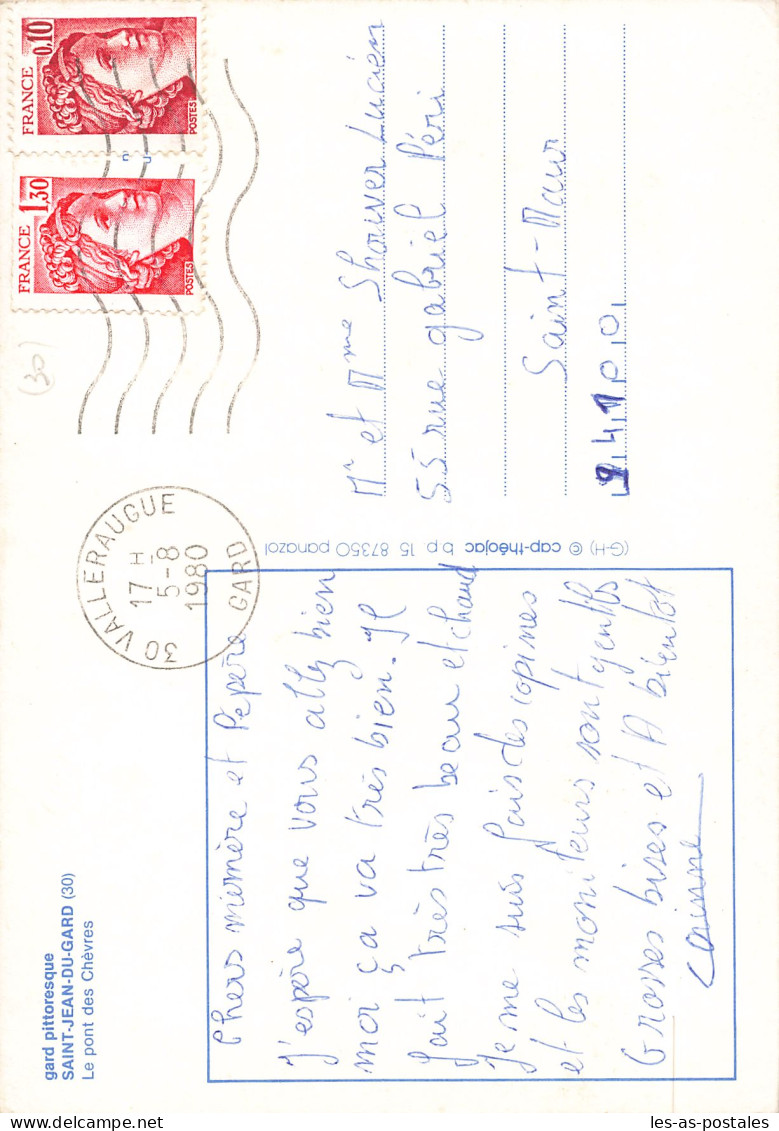 gard pittoresque
SAINT-JEAN-DU-GARD (30)
Le pont des Chèvres
Chers mémère et Pépère
J'espère que vous allez bien
moi ça va très bien. Il
fait très très beau et chaud
Je me suis fais des copines
et les moniteurs sont gentils
Grosses bises et A bientôt
Corinne
(G-H) © cap-théojac b.p. 15 87350 panazol
30 VALLERAUGUE
17 H
5-8
1980
GARD
FRANCE 0,10
POSTES
FRANCE 1,30
POSTES
(30)
Mr et Mme Shouver Lucien
55 rue gabriel Péri
Saint-Maur
94100
les-as-postales